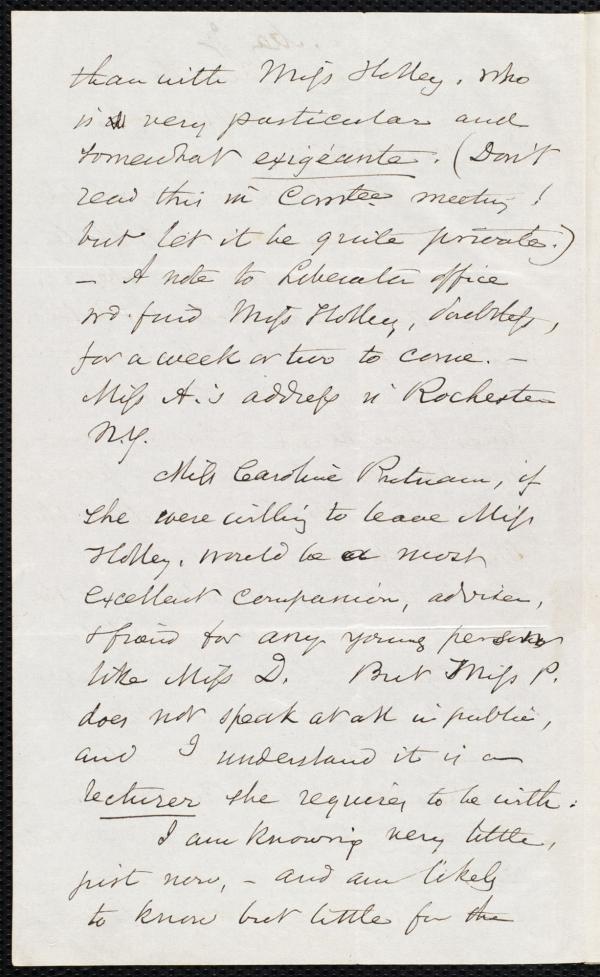 than with Miss Holley, who
is very particular and
somewhat exigéante. (Don't
read this in Comtee meeting!
but let it be quite private.)
– A note to Liberator office
wd. find Miss Holley, doubtless,
for a week or two to come. –
Miss A.'s address is Rochester
N.Y.
Miss Caroline Putnam, if
she were willing to leave Miss
Holley, would be a most
excellent companion, adviser,
& friend for any young person
like Miss D. But Miss P.
does not speak at all in public,
and I understand it is a
lecturer she requires to be with.
I am knowing very little,
just now, – and am likely
to know but little for the